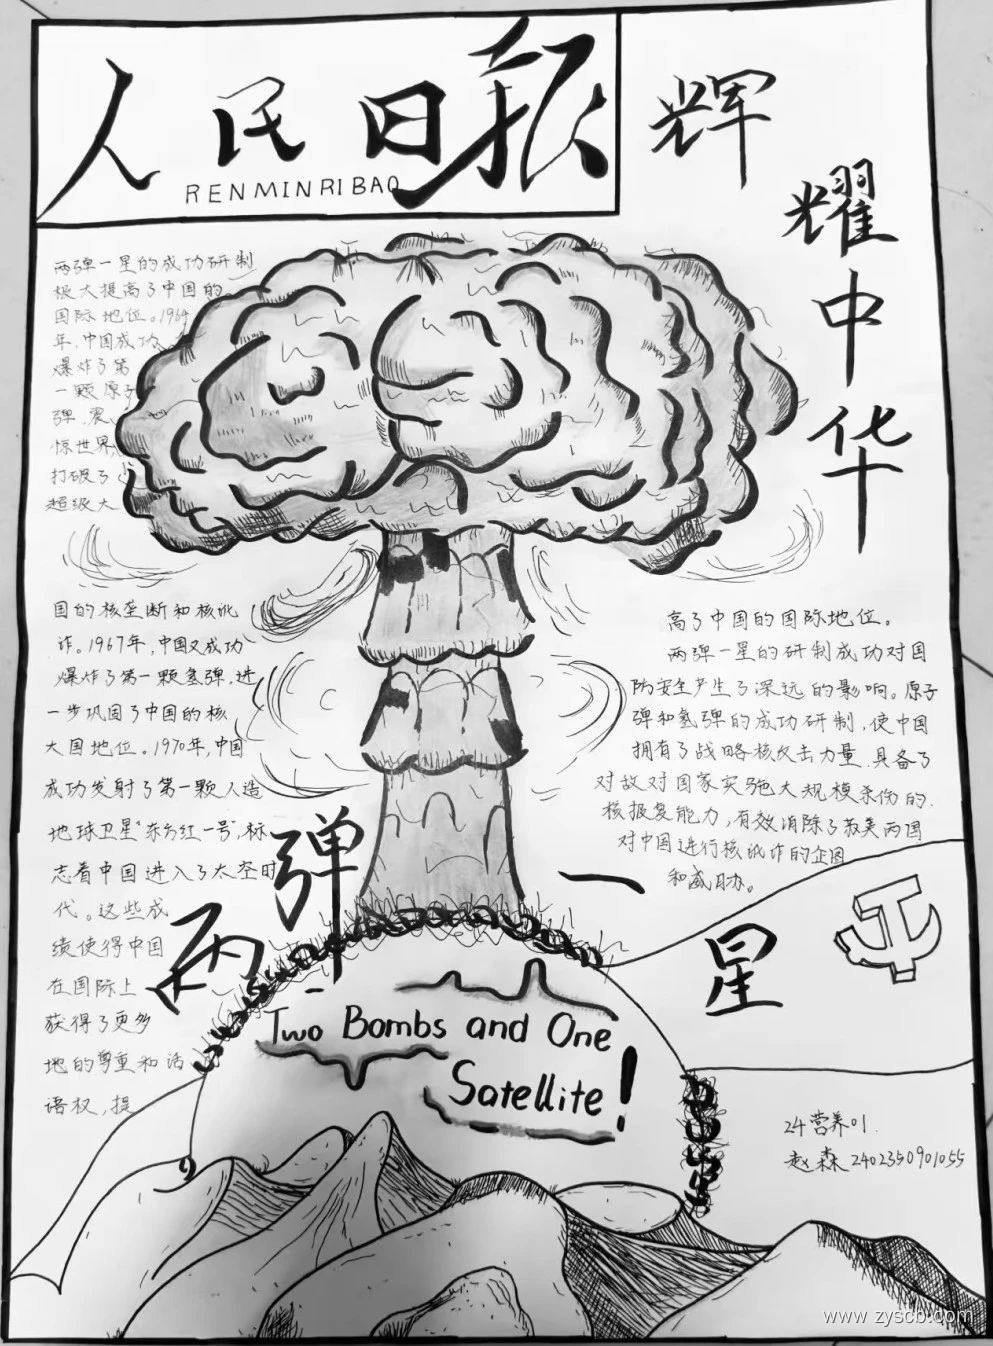 人民日报
RENMINRIBAO
辉
耀
中
华
两弹一星的成功研制
极大提高了中国的
国际地位。1964
年，中国成功
爆炸了第
一颗原子
弹，震
惊世界，
打破了
超级大
国的核垄断和核讹
诈。1967年，中国又成功
爆炸了第一颗氢弹，进
一步巩固了中国的核
大国地位。1970年，中国
成功发射了第一颗人造
地球卫星“东方红一号”，标
志着中国进入了太空时
代。这些成
绩使得中国
在国际上
获得了更多
地的尊重和话
语权，提
高了中国的国际地位。
两弹一星的研制成功对国
防安全产生了深远的影响。原子
弹和氢弹的成功研制，使中国
拥有了战略核反击力量，具备了
对敌对国家实施大规模杀伤的
核报复能力，有效消除了苏美两国
对中国进行核讹诈的企图
和威胁。
两弹一星
Two Bombs and One
Satellite!
24营养01
赵森2402350901055
www.zyscb.com